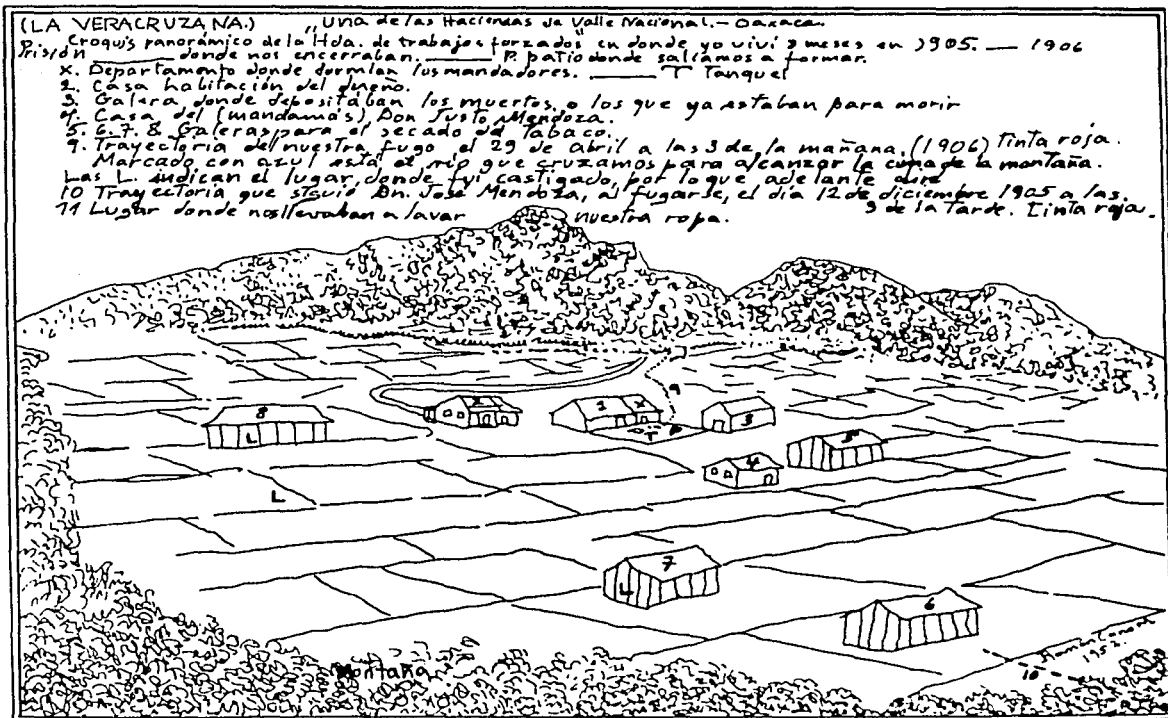 (LA VERACRUZANA.) "Una de las Haciendas de Valle Nacional.- Oaxaca.
Croquis panorámico de la Hda. de trabajos forzados" en donde yo viví 9 meses en 1905. — 1906
Prisión ____ donde nos encerraban. ____ P. patio donde salíamos a formar.
X. Departamento donde dormían los mandadores. ____ T Tanque
2. Casa habitación del dueño.
3. Galera donde depositaban los muertos, o los que ya estaban para morir
4. Casa del (mandamás) Don Justo Mendoza.
5. 6. 7. 8. Galeras para el secado de Tabaco.
9. Trayectoria de nuestra fuga el 29 de abril a las 3 de la mañana. (1906) tinta roja.
Marcado con azul está el río que cruzamos para alcanzar la cima de la montaña.
Las L. indican el lugar, donde fui castigado, por lo que adelante diré
10 Trayectoria que siguió Dn. José Mendoza, al fugarse, el día 12 de diciembre 1905 a las.
3 de la Tarde. Tinta roja.
11 Lugar donde nos llevaban a lavar nuestra ropa.
9
8
L
X
2
X
T
P
3
5
4
L
7
L
6
Montaña
1952
10